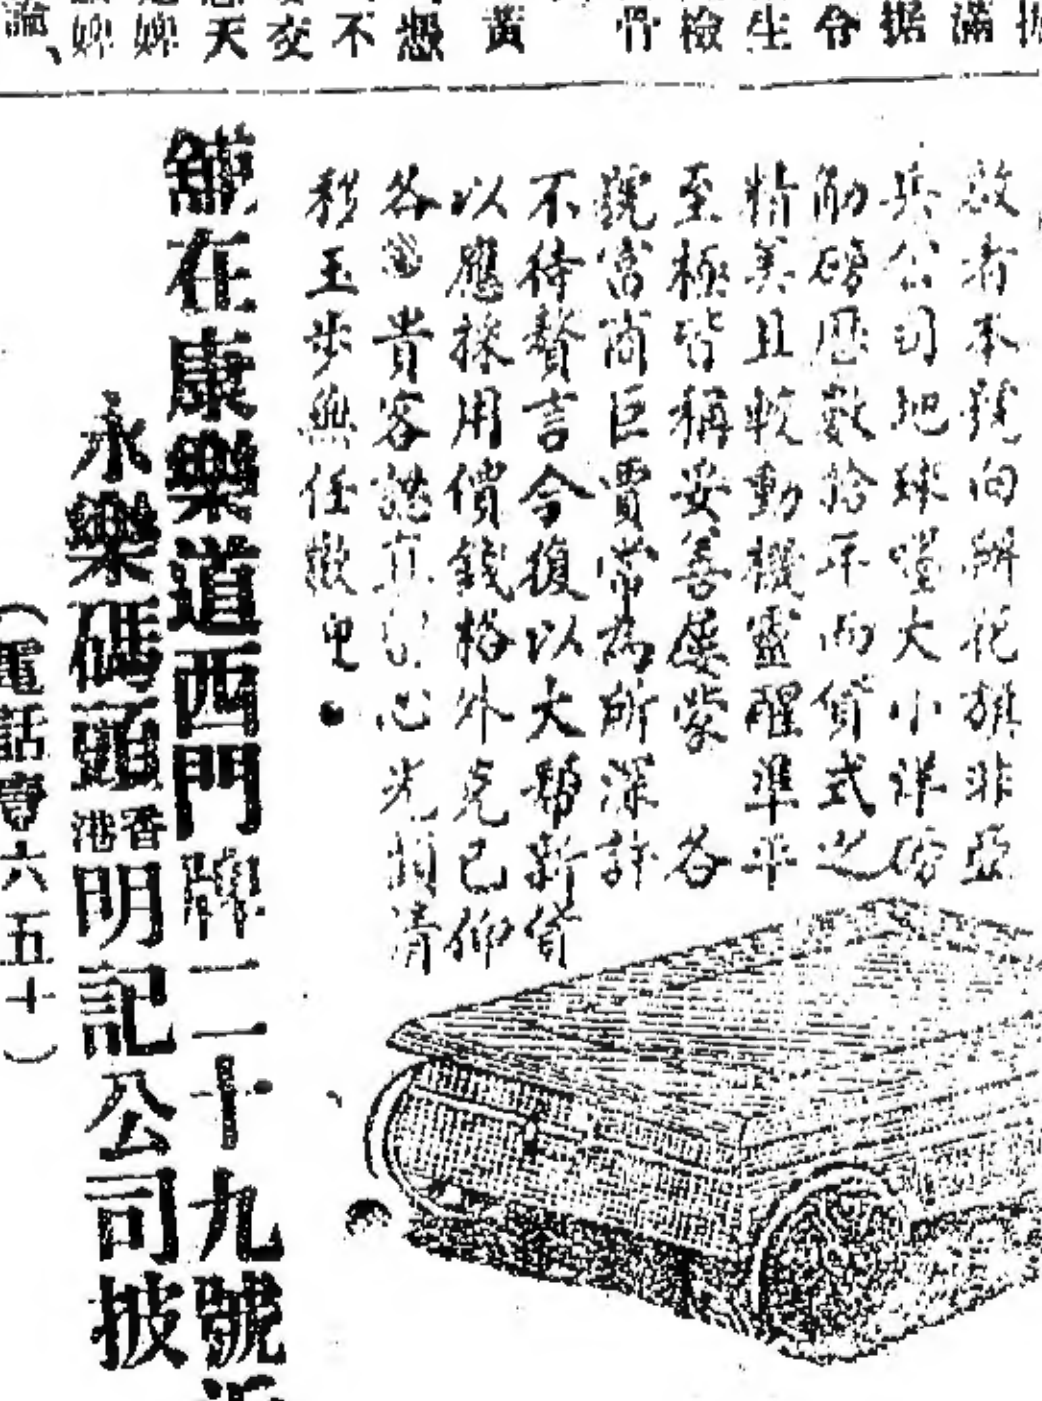 滿
据
令
生
檢
骨
黃
憑
不
交
天
婢
婢
啟者本號向辦花旗非亞
兵公司地球嘜大小洋磅
觔磅歷數拾年而貨式之
精美且較動機靈醒準平
至極皆稱妥善屢蒙 各
號富商巨賈常為所深許
不待贅言今復以大幫新貨
以應採用價錢格外克己仰
各 貴客誌 心光顧請
移玉步無任歡
舖在康樂道西門牌二十九號近
永樂碼頭香港明記公司披
（電話壹六五十）